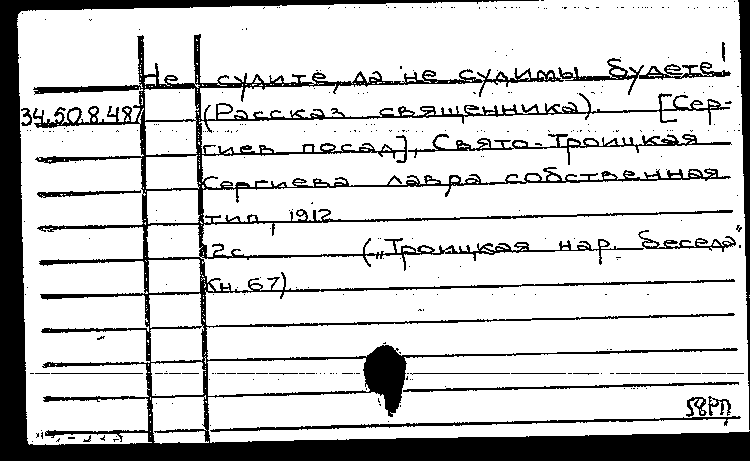 Не судите, да не судимы будете!
34.50.8.487 (Рассказ священника). [Сер-
гиев посад], Свято-Троицкая
Сергиева лавра собственная
тип, 1912.
12с. („Троицкая нар. беседа."
Кн. 67)
58РП